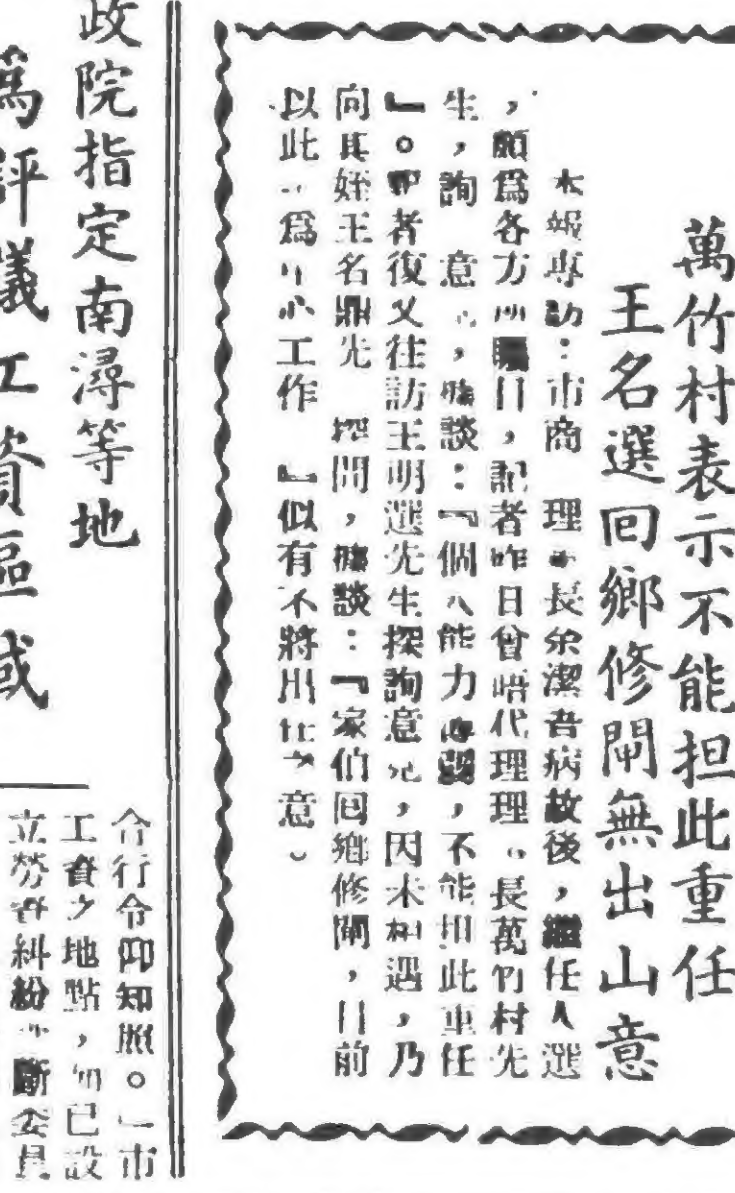 萬竹村表示不能担此重任
王名選回鄉修閘無出山意
本報專訪：市商 理 長余潔吾病故後，繼任人選
，頗爲各方所矚目，記者昨日曾晤代理理 長萬竹村先
生，詢 意 ，據談：『個人能力 ，不能担此重任
』。記者復又往訪王明選先生探詢意見，因未相遇，乃
向其姪王名鼎先 探問，據談：『家伯回鄉修閘，目前
以此 爲中心工作 』似有不將出任之意。
政院指定南潯等地
爲評議工資區域
合行令仰知照。」市
工資之地點，如已設
立勞資糾紛 斷委員